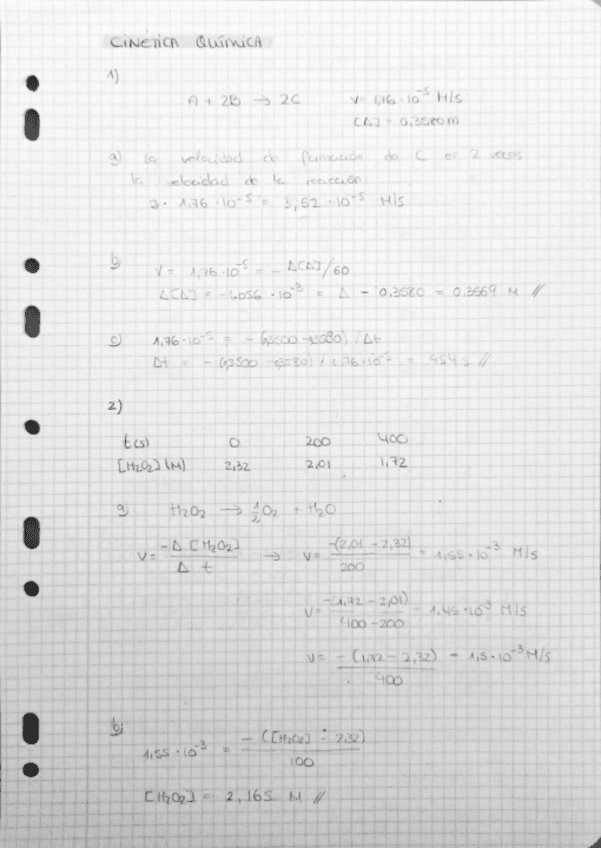 CINÉTICA QUÍMICA
1)
A + 2B → 2C V = 1,76 · 10^-5 M/s
[A] = 0,3580 m
a) La velocidad de formación de C es 2 veces
la velocidad de la reacción.
2 · 1,76 · 10^-5 = 3,52 · 10^-5 M/s
b) V = 1,76 · 10^-5 = - Δ[A]/60
Δ[A] = -1,056 · 10^-3 = A - 0,3580 = 0,3569 M //
c) 1,76 · 10^-5 = - (0,3500 - 0,3580) / Δt
Δt = - (0,3500 - 0,3580) / 1,76 · 10^-5 = 454 s //
2)
t(s) 0 200 400
[H2O2] (M) 2,32 2,01 1,72
a) H2O2 → 1/2 O2 + H2O
V = -Δ [H2O2] / Δ t → V = -(2,01 - 2,32) / 200 = 1,55 · 10^-3 M/s
V = -(1,72 - 2,01) / 400 - 200 = 1,45 · 10^-3 M/s
V = - (1,72 - 2,32) / 400 = 1,5 · 10^-3 M/s
b) 1,55 · 10^-3 = - ([H2O2] - 2,32) / 100
[H2O2] = 2,165 M //